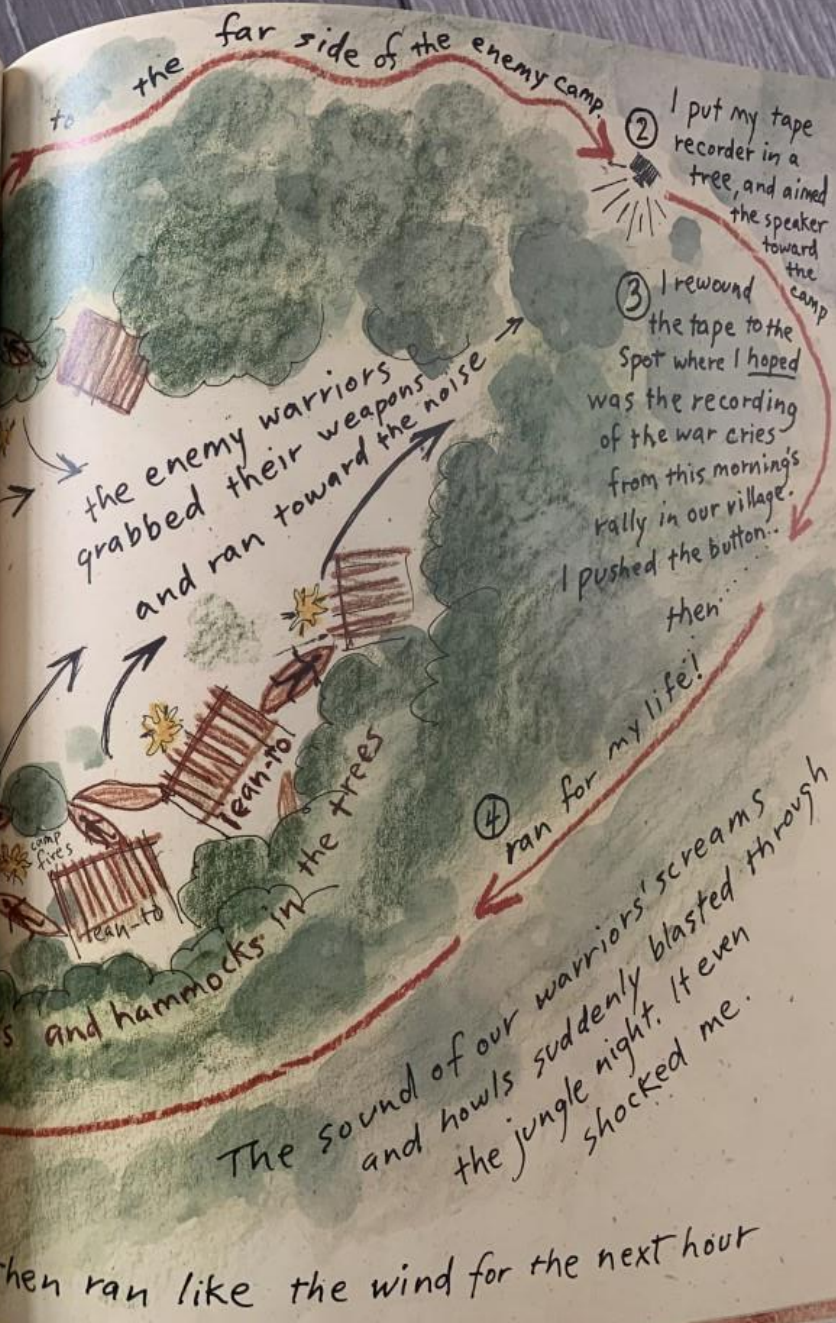 to the far side of the enemy camp.
② I put my tape
recorder in a
tree, and aimed
the speaker
toward
the
camp
③ I rewound
the tape to the
spot where I hoped
was the recording
of the war cries
from this morning's
rally in our village.
I pushed the button..
then.....
④ ran for my life!
the enemy warriors
grabbed their weapons
and ran toward the noise
lean-to
camp
fires
lean-to
s and hammocks in the trees
The sound of our warriors' screams
and howls suddenly blasted through
the jungle night. It even
shocked me.
hen ran like the wind for the next hour